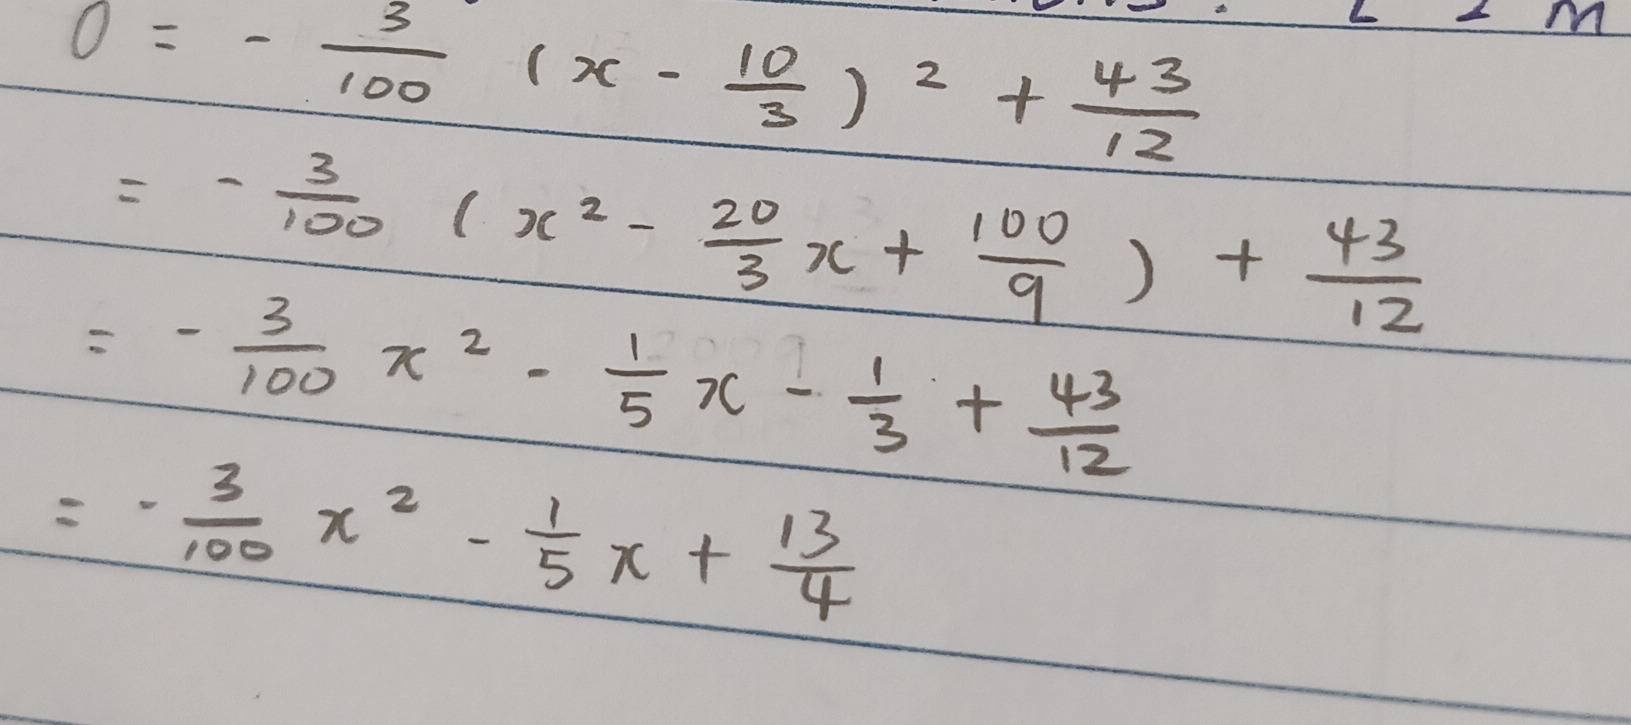 0 = - 3/100 (x - 10/3)² + 43/12
= - 3/100 (x² - 20/3 x + 100/9) + 43/12
= - 3/100 x² - 1/5 x - 1/3 + 43/12
= - 3/100 x² - 1/5 x + 13/4